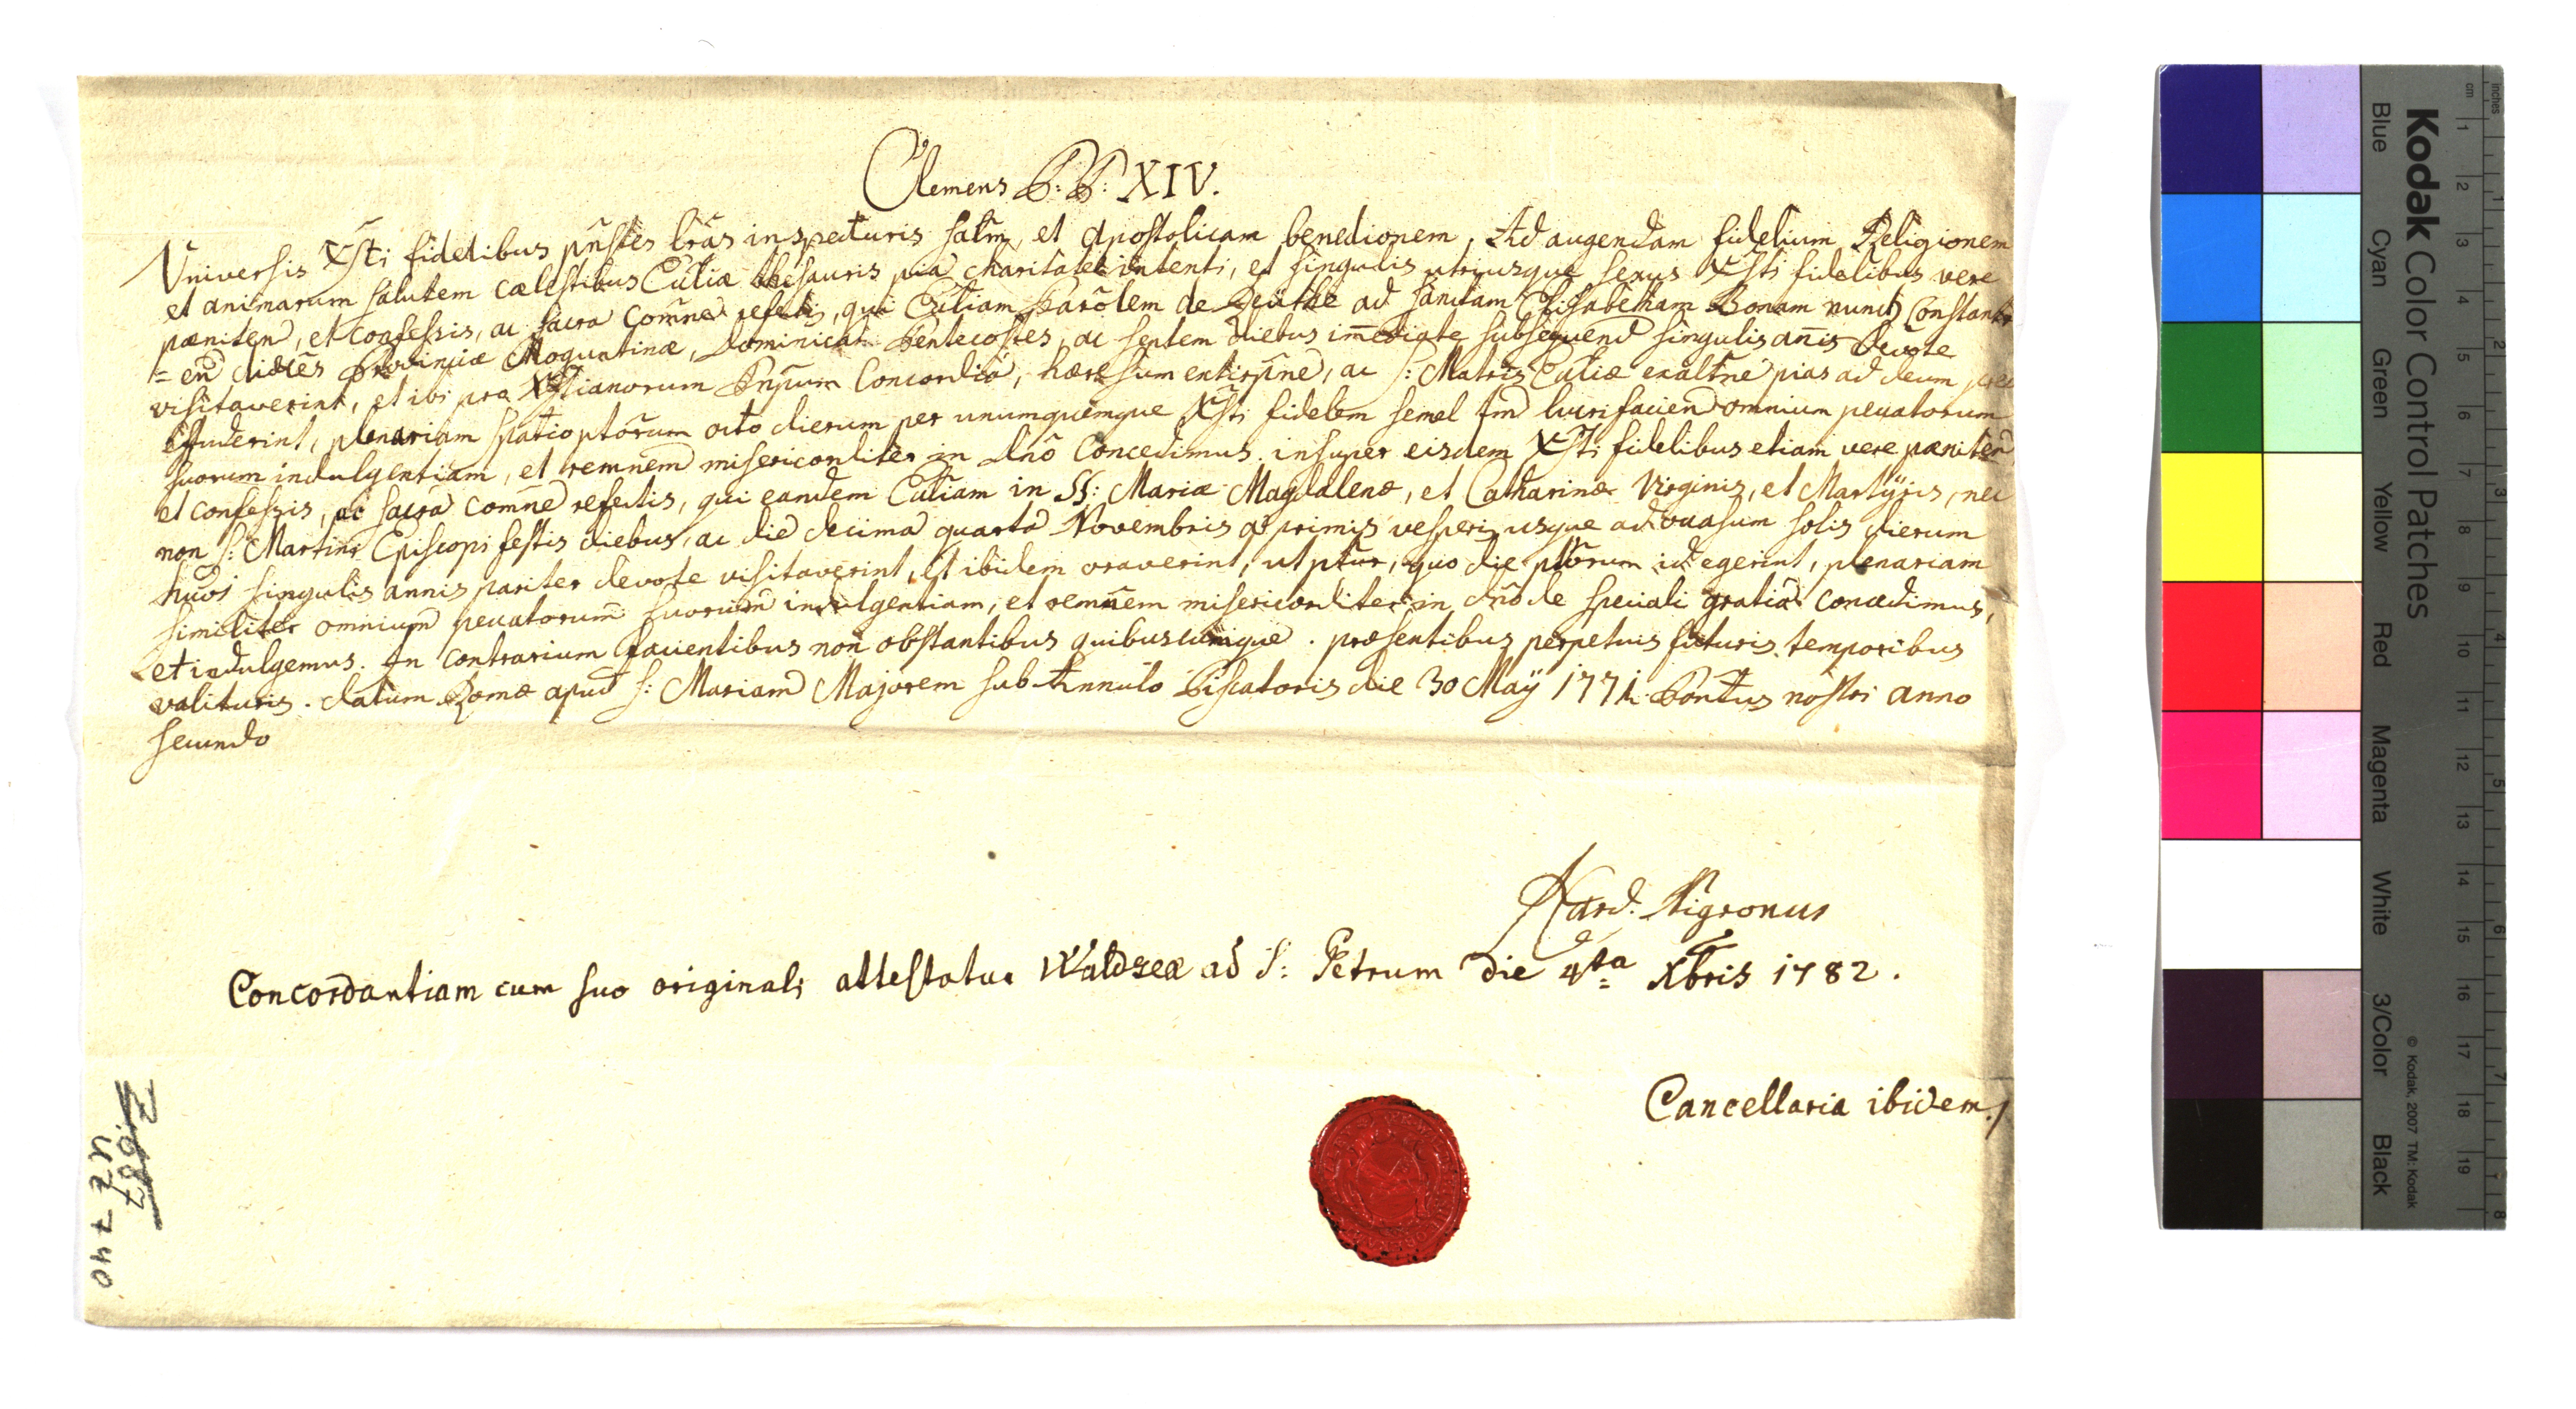 Clemens P: P: XIV.
Universis Xsti fidelibus pñstes lrãs inspecturis salm̃, et Apostolicam benedionem, Ad augendam fidelium Religionem
et animarum salutem cælestibus Ecctiæ thesauris pia charitate intenti, et singulis utriusque sexus Xsti fidelibus vere
pæniten, et confessis, ac sacra Com̃ne refectis, qui Ecctiam Parõlem de Reuthe ad sanctam Elisabetham Bonam nunc Constan
= en diœces Provinciæ Moguntinæ, Dominica Pentecostes, ac septem diebus im̃ediate subsequend singulis añis Devote
visitaverint, et ibi pro Xstianorum Pnpum Concordia, hæresum extirpñe, ac S: Matris Ecctiæ exaltñe pias ad deum prec
effuderint, plenariam spatio ptõrum octo dierum per unumquemque Xsti fidelem semel tm̃ lucrifacien omnium peccatorum
suorum indulgentiam, et remñem misericorditer in Dño Concedimus. insuper eisdem Xsti fidelibus etiam vere pæniten
et confessis, ac sacra Com̃ne refectis, qui eandem Ecctiam in SS: Mariæ Magdalenæ, et Catharinæ Virginis, et Martÿris, nec
non S: Martini Episcopi festis diebus, ac die decima quarta Novembris a primis vesperis usque ad occasum solis dierum
huõi singulis annis pariter devote visitaverint, et ibidem oraverint, ut ptur, quo die ptõrum id egerint, plenariam
similiter omnium peccatorum suorum indulgentiam, et remñem misericorditer in dño de speciali gratia concedimus,
et indulgemus. In contrarium facientibus non obstantibus quibuscumque. præsentibus perpetuis futuris temporibus
valituris. datum Romæ apud S: Mariam Majorem sub Annulo Piscatoris die 30 Maÿ 1771. Pontus nostri anno
secundo
Nigronus
Concordantiam cum suo originali attestatur Waldseæ ad S: Petrum die 4ta Xbris 1782.
Cancellaria ibidem./
U 2 740
Kodak Color Control Patches
Blue Cyan Green Yellow Red Magenta White 3/Color Black
© Kodak, 2007 TM: Kodak
cm 1 2 3 4 5 6 7 8 9 10 11 12 13 14 15 16 17 18 19
inches 1 2 3 4 5 6 7 8